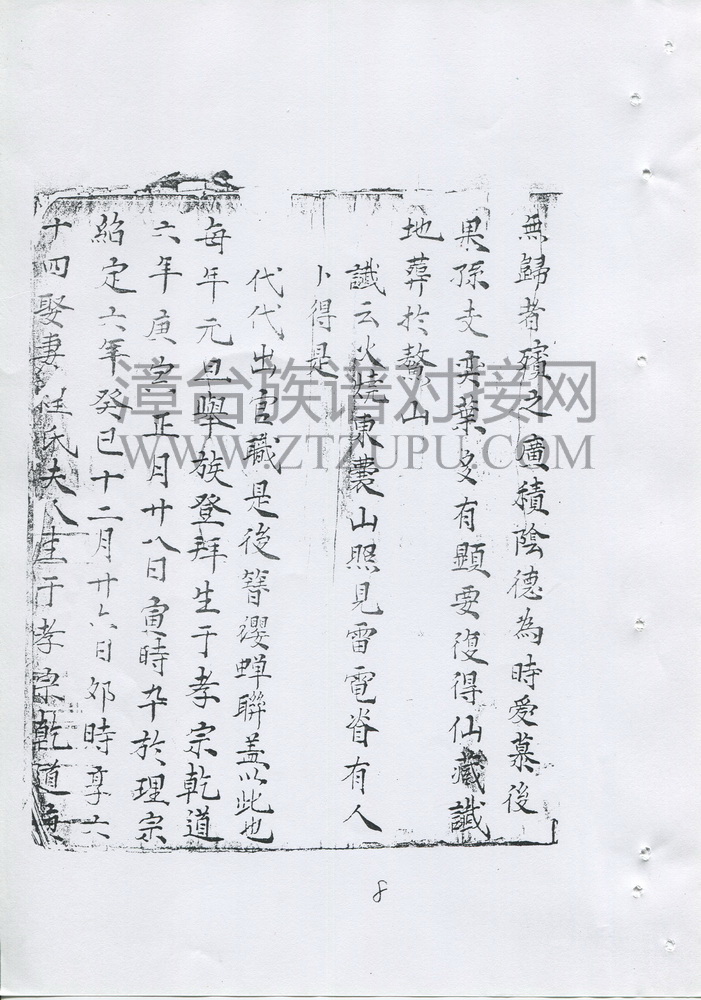 無歸者殯之廣積陰德為時愛慕後
果孫支奕葉多有顯要復得仙藏讖
地葬於鰲山
讖云火燒東囊山照見雷電脊有人
卜得是
代代出官職是後簪纓蟬聯盖以此也
每年元旦舉族登拜生于孝宗乾道
六年庚寅正月廿八日寅時卒於理宗
紹定六年癸巳十二月廿六日卯時享六
十四娶妻 氏夫人生于孝宗乾道
漳台族谱对接网
WWW.ZTZUPU.COM
8